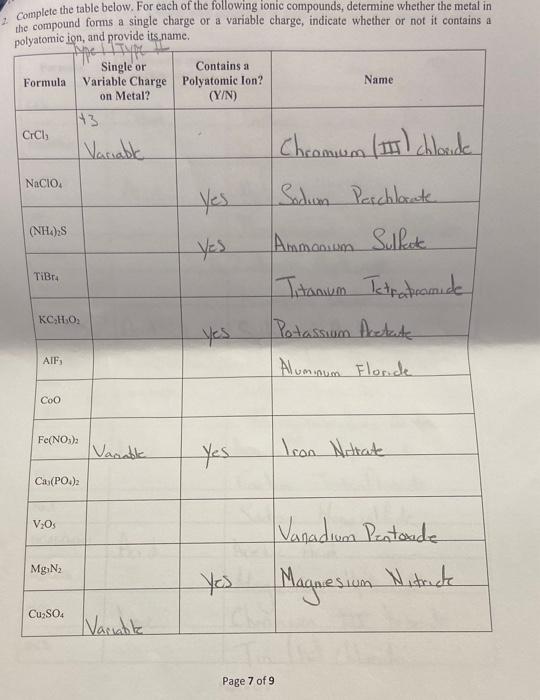 2. Complete the table below. For each of the following ionic compounds, determine whether the metal in
the compound forms a single charge or a variable charge, indicate whether or not it contains a
polyatomic ion, and provide its name.
Type I / Type II
Formula
Single or
Variable Charge
on Metal?
Contains a
Polyatomic Ion?
(Y/N)
Name
CrCl₃
+3
Variable
Chromium (III) chloride
NaClO₄
Yes
Sodium Perchlorate
(NH₄)₂S
Yes
Ammonium Sulfate
TiBr₄
Titanium Tetrabromide
KC₂H₃O₂
yes
Potassium Acetate
AlF₃
Aluminum Floride
CoO
Fe(NO₃)₂
Variable
Yes
Iron Nitrate
Ca₃(PO₄)₂
V₂O₅
Vanadium Pentoxide
Mg₃N₂
Yes
Magnesium Nitride
Cu₂SO₄
Variable
Page 7 of 9